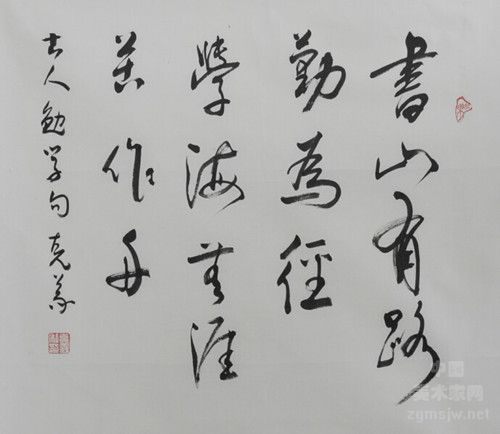 書山有路
勤為徑
學海無涯
苦作舟
古人勉学句 克義
中国
美术家网
zgmsjw.net